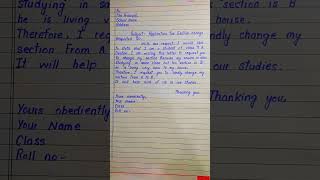 To,
The Principal,
School Name
Address
Subject:- Application for Section change
Respected Sir,
With due respect I would like
to state that I am a student of class 9 A
Section. I am writing this letter to request you
to change my section Because my cousin is also
Studying in same class but his section is B
he is living very near to my house.
Therefore, I request you to kindly change my
section from A to B.
It will help both of us in our studies.
Thanking you
Yours obediently,
Your Name
Class
Roll no:-
Studying in
section is B
he is livin
house.
Therefore, I requ
kindly change my
section From A to
It will help
our studies.
Thanking you,
Yours obediently
Your Name
Class
Roll no:-